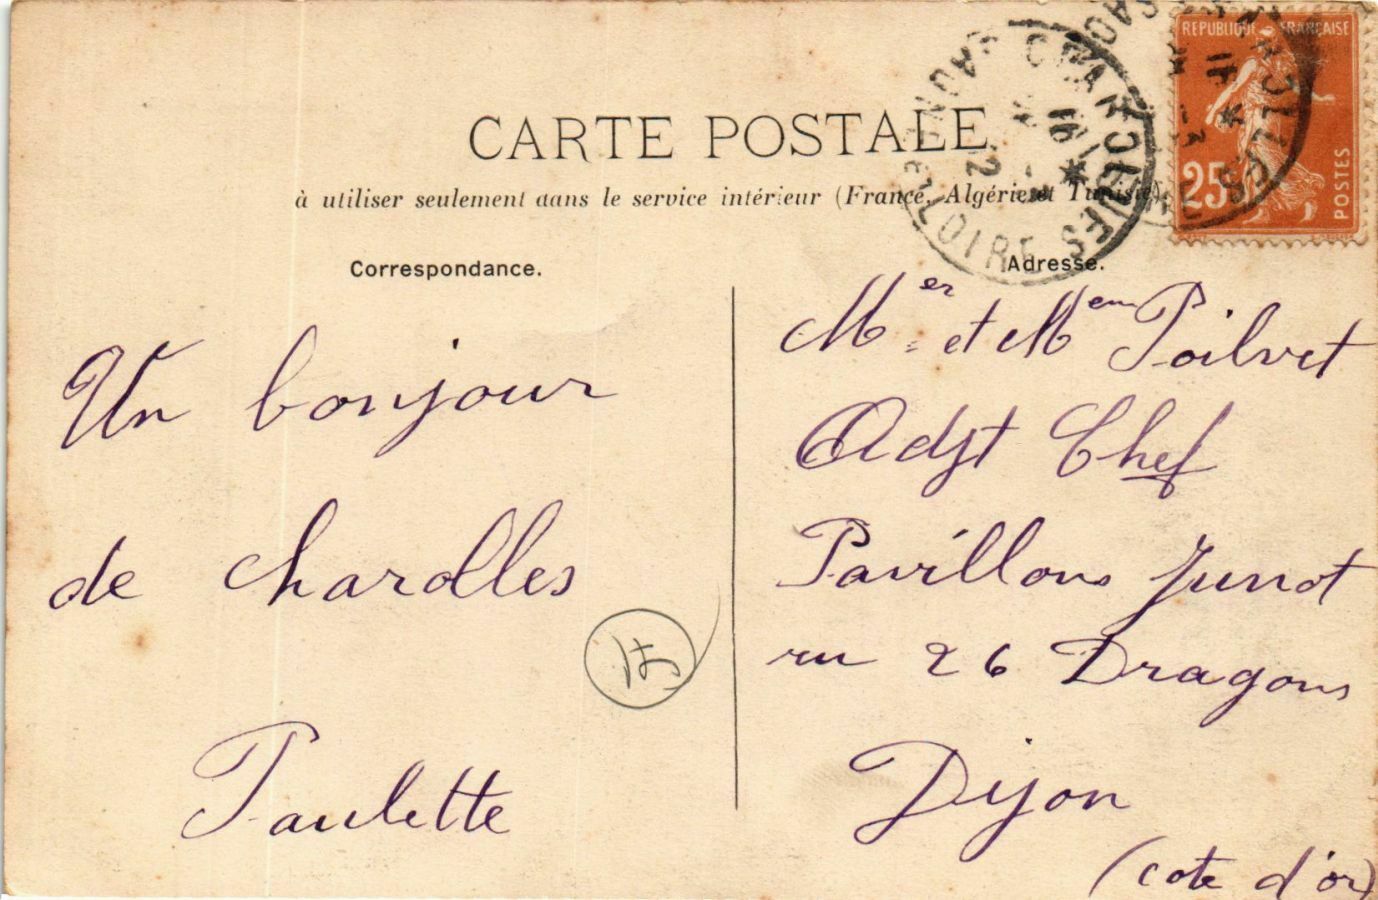 CARTE POSTALE
à utiliser seulement dans le service intérieur (France, Algérie et Tunisie)
Correspondance.
Un bonjour
de Charolles
Paulette
15
Adresse.
Mer et Mem Poilvet
Adjt Chef
Pavillons Junot
ru 26 Dragons
Dijon
(cote d'or)
REPUBLIQUE FRANÇAISE
25
POSTES
CHAROLLES
SAONE-ET-LOIRE
16